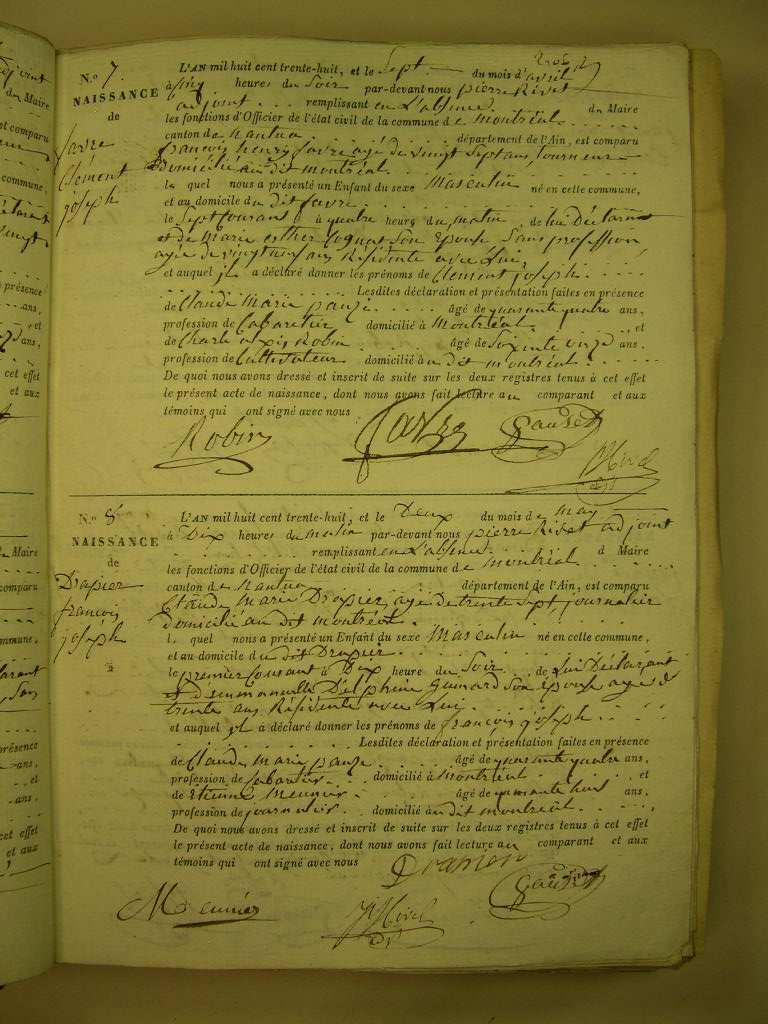 N.º 7.
NAISSANCE
de
favre
Clément
joseph
L'AN mil huit cent trente-huit, et le Sept du mois d'avril
à cinq heures du Soir par-devant nous pierre Rivet
adjoint remplissant en L'absence du Maire
les fonctions d'Officier de l'état civil de la commune de montréal
canton de nantua département de l'Ain, est comparu
francois henry favre agé de vingt Sept ans, tourneur
domicilié au dit montréal
le quel nous a présenté un Enfant du sexe Masculin né en cette commune,
et au domicile du dit favre
le Sept Courant à quatre heures du matin, de lui Déclarant
et de Marie esther Cognat Son Epouse Sans profession
agée de vingt ans Résidente avec Lui,
et auquel il a déclaré donner les prénoms de Clément joseph
Lesdites déclaration et présentation faites en présence
de Claude Marie agé de quarante quatre ans,
profession de Cabaretier domicilié à Montréal et
de Charle Robin agé de Soixante onze ans,
profession de Cultivateur domicilié au dit montréal
De quoi nous avons dressé et inscrit de suite sur les deux registres tenus à cet effet
le présent acte de naissance, dont nous avons fait lecture au comparant et aux
témoins qui ont signé avec nous
Robin favre
N.º 8
NAISSANCE
de
Drapier
françois
joséph
L'AN mil huit cent trente-huit, et le Deux du mois de May
à Dix heures du matin par-devant nous pierre Rivet adjoint
remplissant en L'absence d Maire
les fonctions d'Officier de l'état civil de la commune de montréal
canton de Nantua département de l'Ain, est comparu
Claude Marie Drapier, agé de trente sept journalier
domicilié au dit montréal
le quel nous a présenté un Enfant du sexe Masculin né en cette commune,
et au domicile du dit Drapier
le premier Courant à Dix heure du Soir de Lui Déclarant
et Delphine Son Epouse agée de
trente ans Résidente avec Lui
et auquel il a déclaré donner les prénoms de françois joseph
Lesdites déclaration et présentation faites en présence
de Claude Marie agé de quarante quatre ans,
profession de Cabaretier domicilié à montréal et
de Etienne Meunier agé de quarante huit ans,
profession de journalier domicilié au dit montréal
De quoi nous avons dressé et inscrit de suite sur les deux registres tenus à cet effet
le présent acte de naissance, dont nous avons fait lecture au comparant et aux
témoins qui ont signé avec nous
Meunier